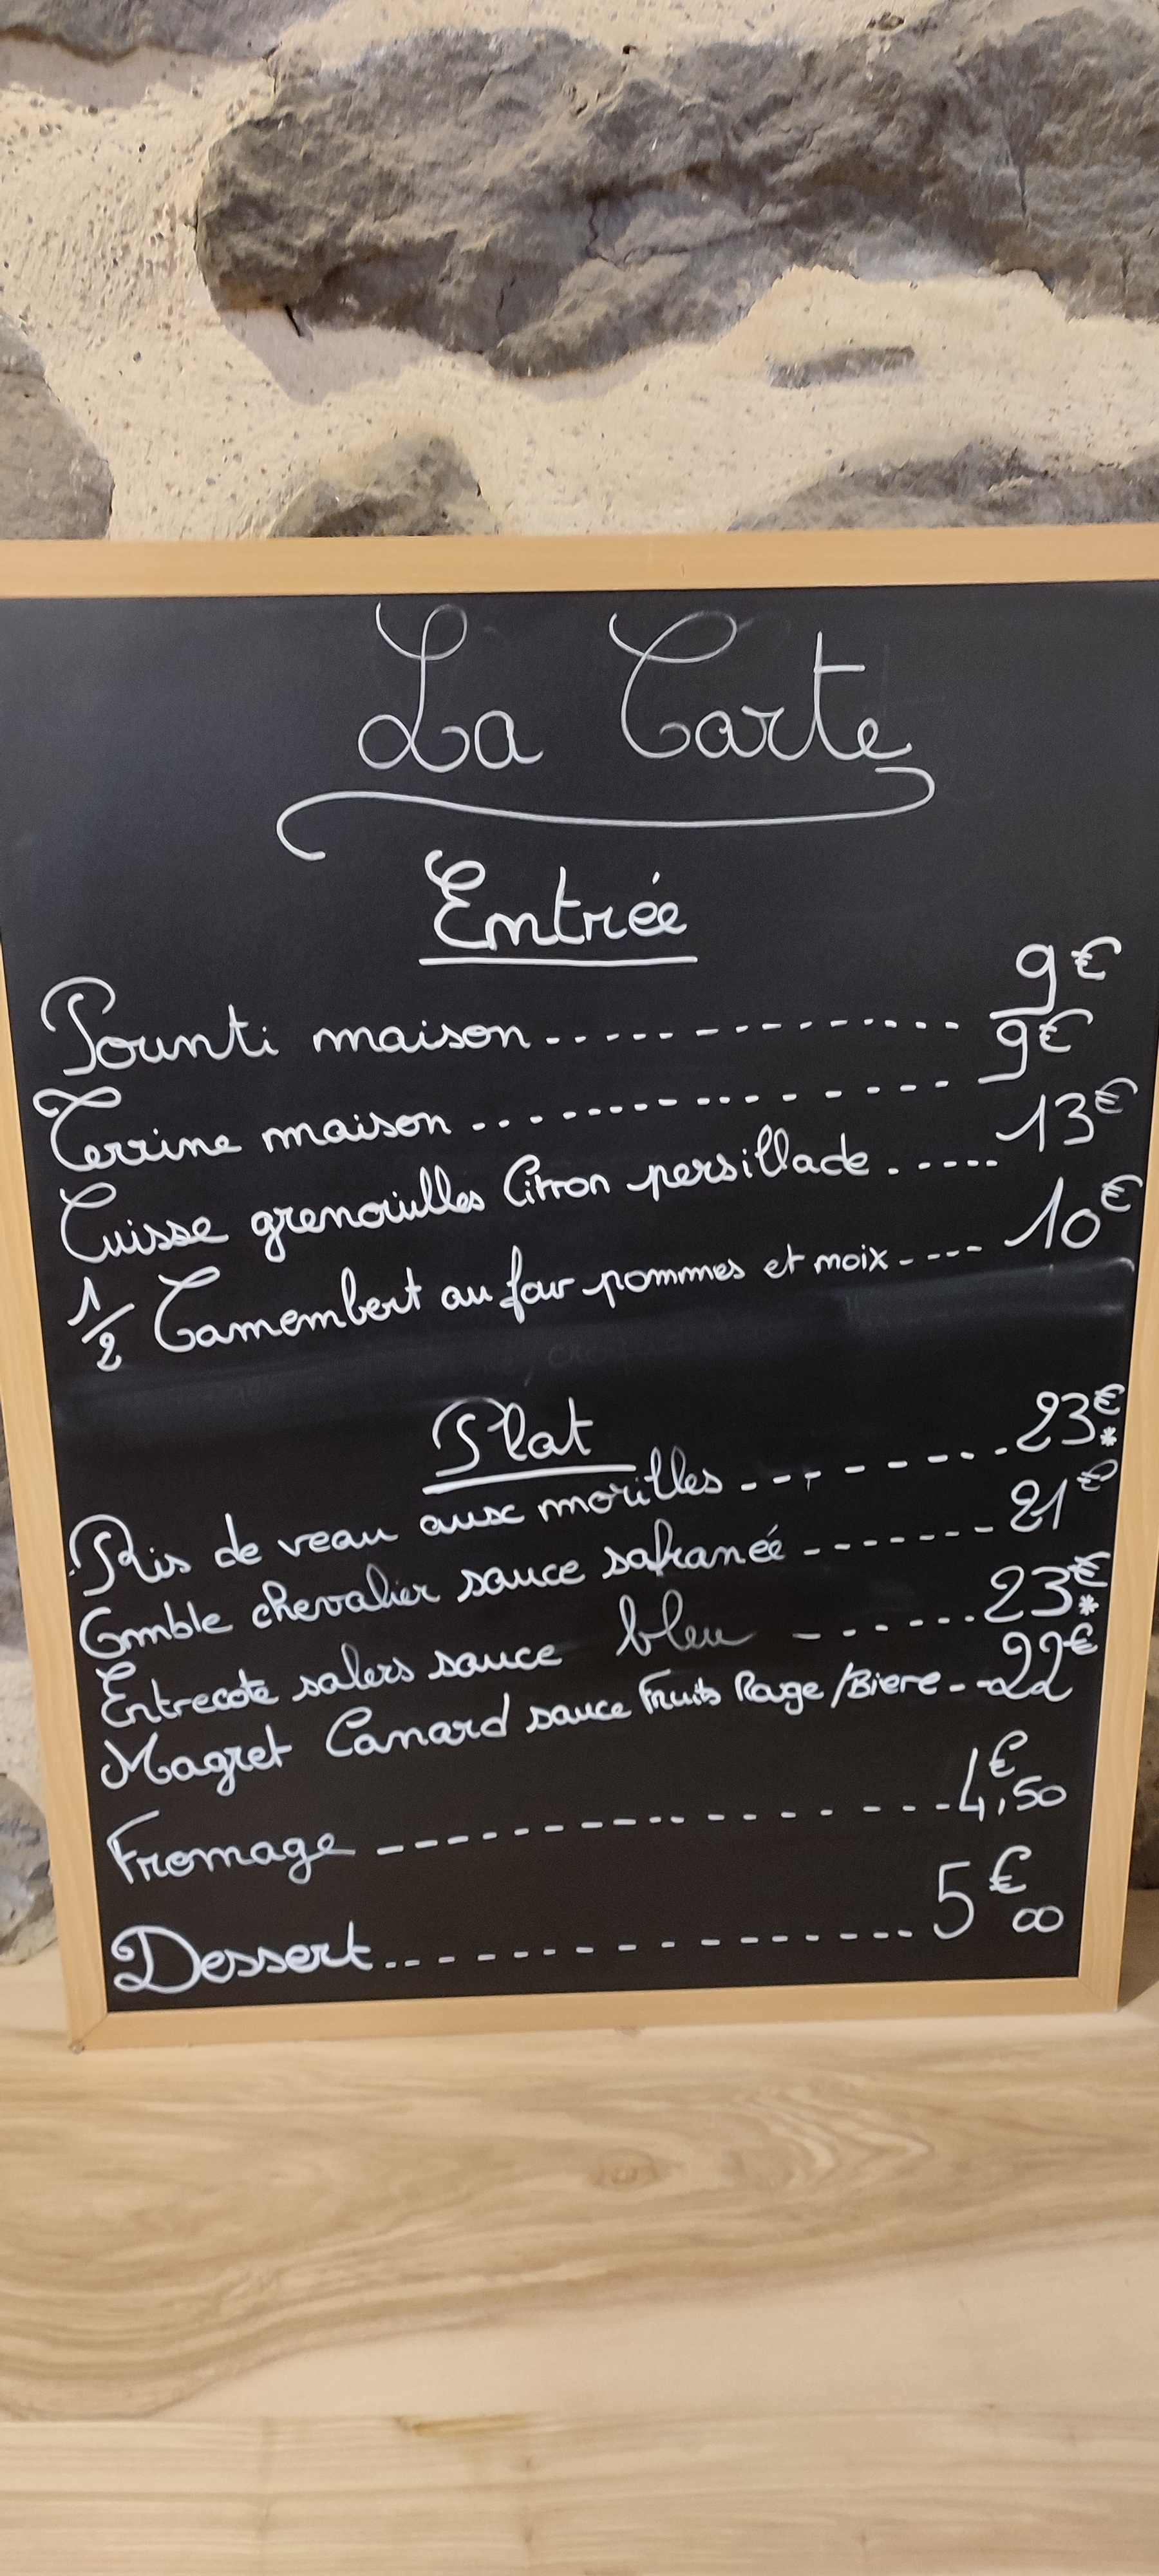 La Carte
Entrée
Pounti maison - - - - - - - - - - - - - 9€
Terrine maison - - - - - - - - - - - - - - 9€
Cuisse grenouilles Citron persillade - - - - - 13€
1/2 Camembert au four pommes et moix - - - - 10€
Plat
Ris de veau aux morilles - - - - - - - - - 23€*
Omble chevalier sauce safranée - - - - - - - 21€
Entrecote salers sauce bleu - - - - - - 23€*
Magret Canard sauce Fruits Rage/Biere - - 22€
Fromage - - - - - - - - - - - - - - - - 4,€50
Dessert - - - - - - - - - - - - - - - - 5€00